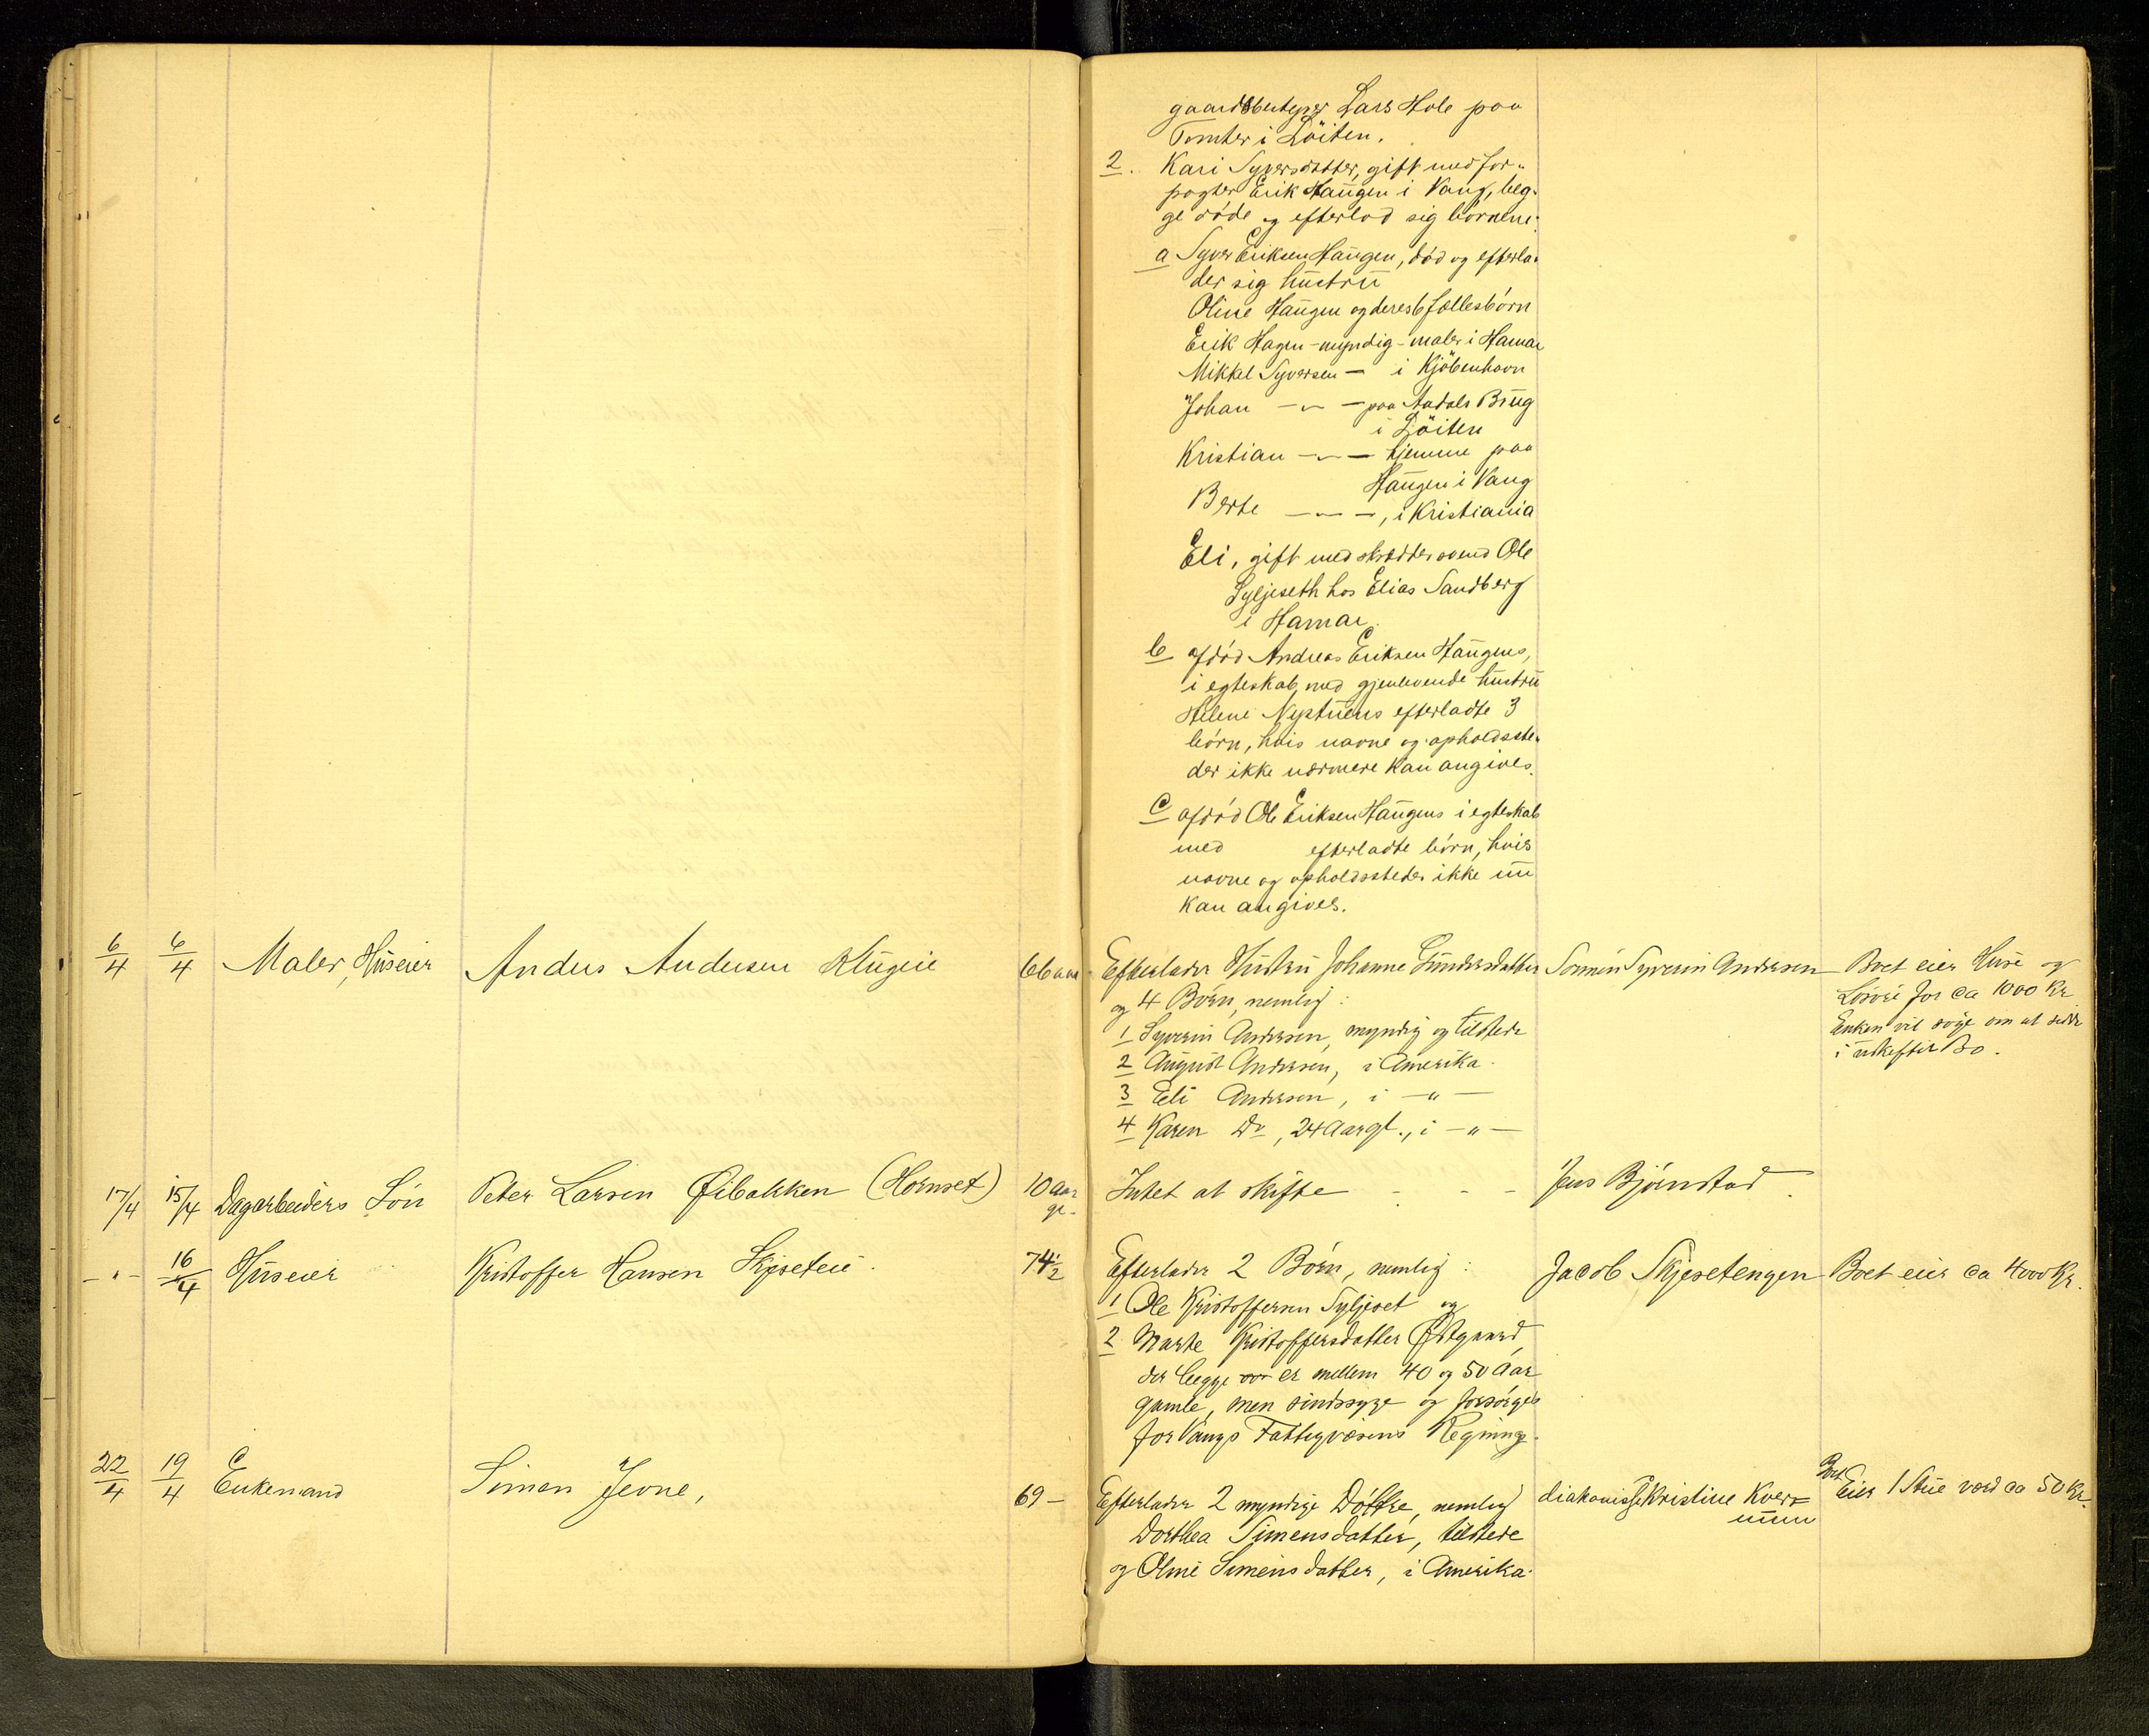 gaardsbestyrer Lars Hole paa
Tomter i Löiten.
2. Kari Syversdatter, gift med for-
pagter Erik Haugen i Vang, beg-
ge døde og efterlod sig børnene:
a Syver Eriksen Haugen, død og efterla-
der sig hustru
Oline Haugen og deres 6 fællesbørn
Erik Hagen - myndig - maler i Hamar
Mikkel Syversen — i Kjöbenhavn
Johan —〃— paa Aadals Brug
i Löiten
Kristian —〃— hjemme paa
Haugen i Vang
Berte —〃—, i Kristiania
Eli, gift med skræddersvend Ole
Syljeseth hos Elias Sandberg
i Hamar.
b afdød Andreas Eriksen Haugens,
i egteskab med gjenlevende hustru
Helene Neptuens efterladte 3
børn, hvis navne og opholdsste-
der ikke nærmere kan angives.
c afdød Ole Eriksen Haugens i egteskab
med efterladte børn, hvis
navne og opholdssteder ikke nu
kan angives.
6/4 6/4 Maler, Huseier Anders Andersen Klugeie 66 aar Efterlader Hustru Johanne Gundersdatter Sønnen Syverin Andersen Boet eier Huse og
og 4 Børn, nemlig: Løsøre for ca 1000 Kr
1 Syverin Andersen, myndig og tilstede Enken vil søge om at sidde
2 August Andersen, i Amerika. i uskiftet Bo.
3 Eli Andersen, i —〃—
4 Karen Do, 24 Aar gl., i —〃—
17/4 15/4 Dagarbeiders Søn Peter Larsen Øibakken (Hornset) 10 aar gl. Intet at skifte - - - Jens Bjørnstad.
—〃— 16/4 Huseier Kristoffer Hansen Skjeseteie. 74 1/2 Efterlader 2 Børn, nemlig: Jacob Skjesetengen Boet eier ca 4000 Kr.
1 Ole Kristoffersen Syljeset og
2 Marte Kristoffersdatter Østgaard,
der begge er mellem 40 og 50 Aar
gamle, men sindssyge og forsørges
for Vangs Fattigvæsens Regning.
22/4 19/4 Enkemand Simen Jevne, 69 — Efterlader 2 myndige Døttre, nemlig diakonisse Kristine Kver= Boet Eier 1 Stue værd ca 50 Kr.
Dorthea Simensdatter, tilstede
og Oline Simensdatter, i Amerika.